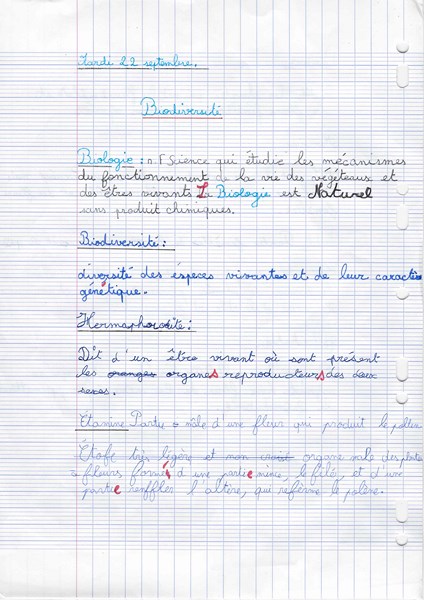 Mardi 22 septembre.
Biodiversité
Biologie : n.f Science qui étudie les mécanismes
du fonctionnement de la vie des végéteaux et
des êtres vivants La Biologie est Naturel
sans produit chimiques.
Biodiversité :
diversité des espèces vivantes et de leur caractère
génétique.
Hermaphrodite :
Dit d'un être vivant où sont présent
les oranges organes reproducteurs des deux
sexes.
Etamine Partie mâle d'une fleur qui produit le pollen
Etofe très légère et non croisé organe mâle des plantes
à fleurs formé d'une partie mince, le filé, et d'une
partie renfflés l'altère, qui referme le polène.